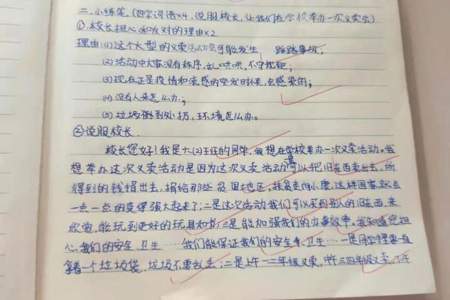 二、小练笔。(四字词语×4，说服校长，让我们在学校举办一次义卖会)
①校长担心和反对的理由×2
理由：(1)这个大型的义卖活动会可能发生 踩踏事故；
(2)活动中大家没有秩序，乱哄哄，不守规矩；
(3)现在正是疫情和流感的突发时候，会感染的；
(4)没有人来怎么办；
(5)垃圾到处扔，环境怎么办。
②说服校长。
校长您好！我是六(2)班的同学，我想在学校举办一次义卖活动。我
想举办这次义卖活动是因为这次义卖可以把旧东西卖出去，所
得到的钱捐出去，捐给那些贫困地区，让国家
一点一点的变得强大起来了；二是这次活动我们可以买到别人的旧东西来
欣赏，能玩到更好的玩具和书；三是能加强我们的办事效率。我知道您担
心我们的安全 卫生 …… 我们能保证我们的安全和卫生 …… 一是同学
拿一个垃圾袋，垃圾不要乱丢；二是上午一二年级义卖，